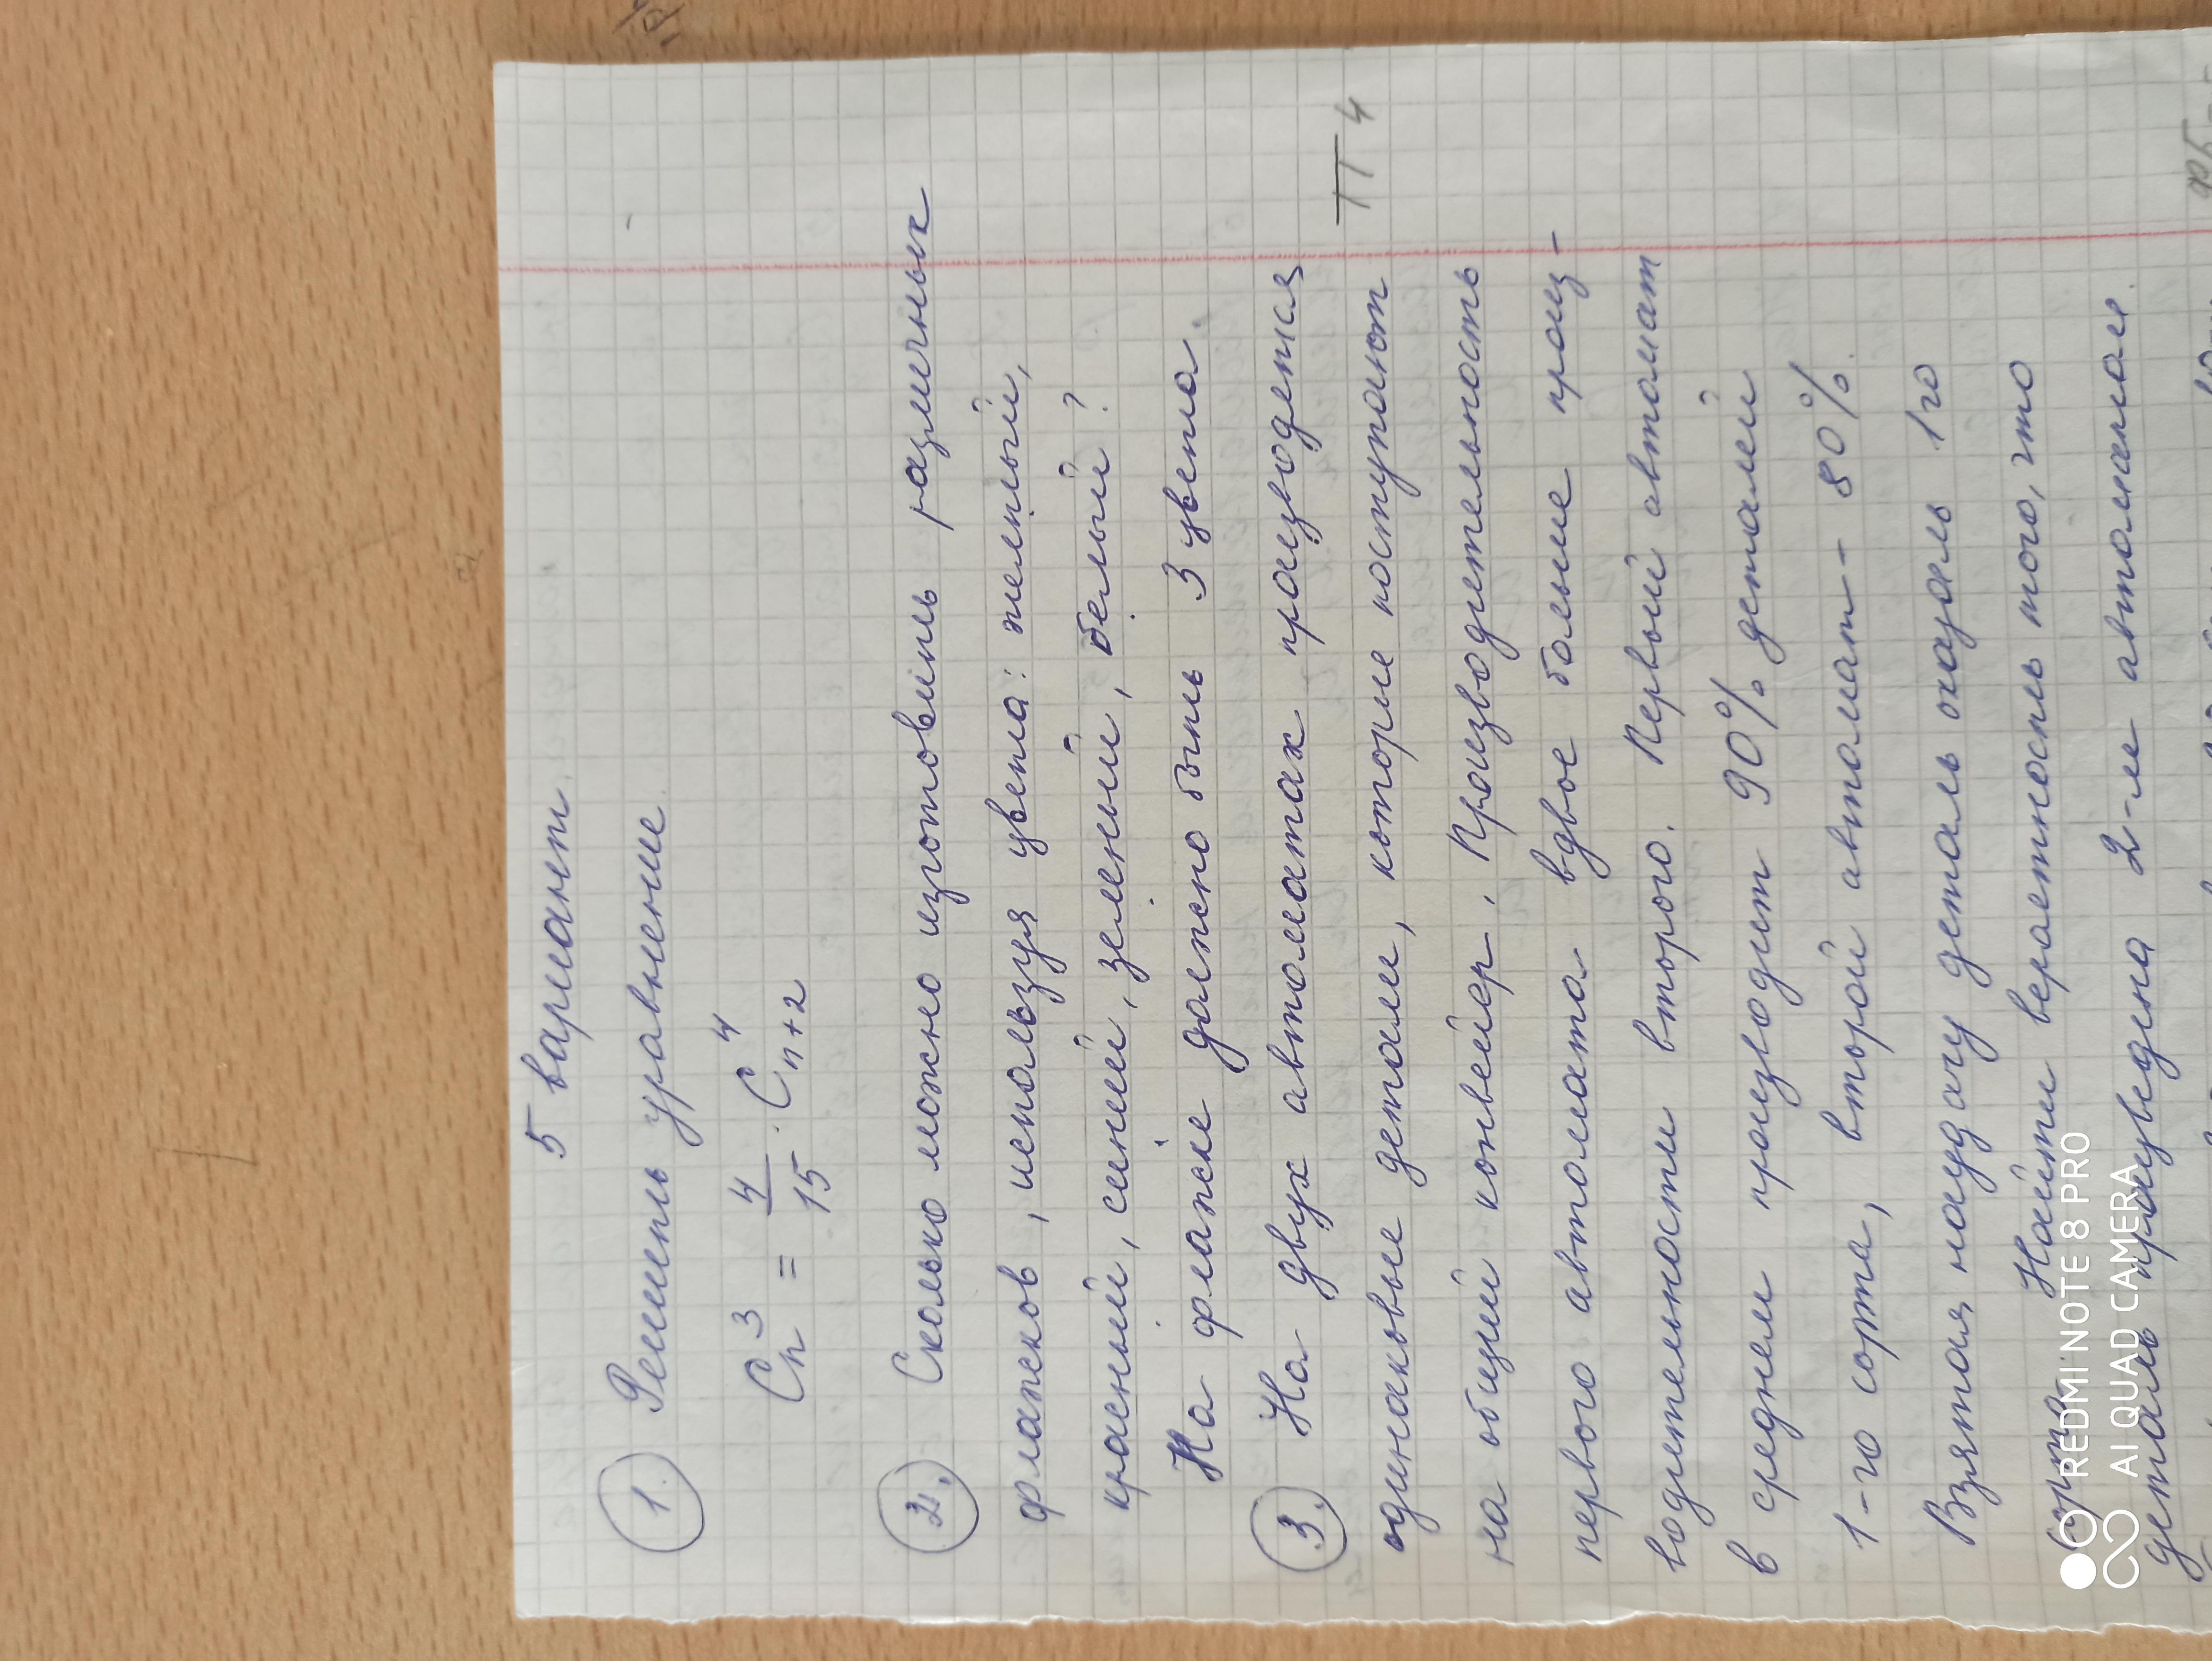 5 вариант.
1. Решить уравнение.
C_n^3 = 4/15 · C_{n+2}^4
2. Сколько можно изготовить различных
флажков, используя цвета: желтый,
красный, синий, зеленый, белый?
На флажке должно быть 3 цвета.
3. На двух автоматах производятся
одинаковые детали, которые поступают
на общий конвейер. Производительность
первого автомата вдвое больше произ-
водительности второго. Первый автомат
в среднем производит 90% деталей
1-го сорта, второй автомат - 80%.
Взятая наудачу деталь оказаль 1го
сорта. Найти вераетность того, что
деталь произведена 2-м автоматом.
ТТ 4
REDMI NOTE 8 PRO
AI QUAD CAMERA